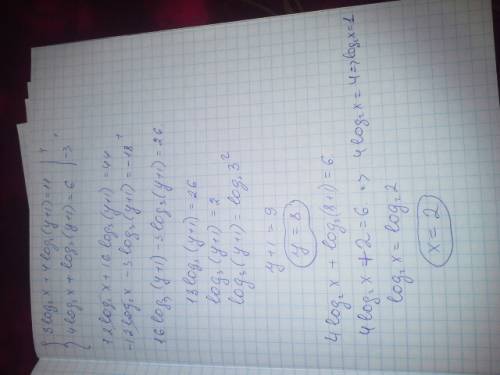 { 3 log₂ x + 4 log₃ (y+1) = 11 | 4
{ 4 log₂ x + log₃ (y+1) = 6 | -3
12 log₂ x + 16 log₃ (y+1) = 44
-12 log₂ x - 3 log₃ (y+1) = -18
16 log₃ (y+1) - 3 log₃ (y+1) = 26
13 log₃ (y+1) = 26
log₃ (y+1) = 2
log₃ (y+1) = log₃ 3²
y+1 = 9
y = 8
4 log₂ x + log₃ (8+1) = 6
4 log₂ x + 2 = 6 => 4 log₂ x = 4 => log₂ x = 1
log₂ x = log₂ 2
x = 2